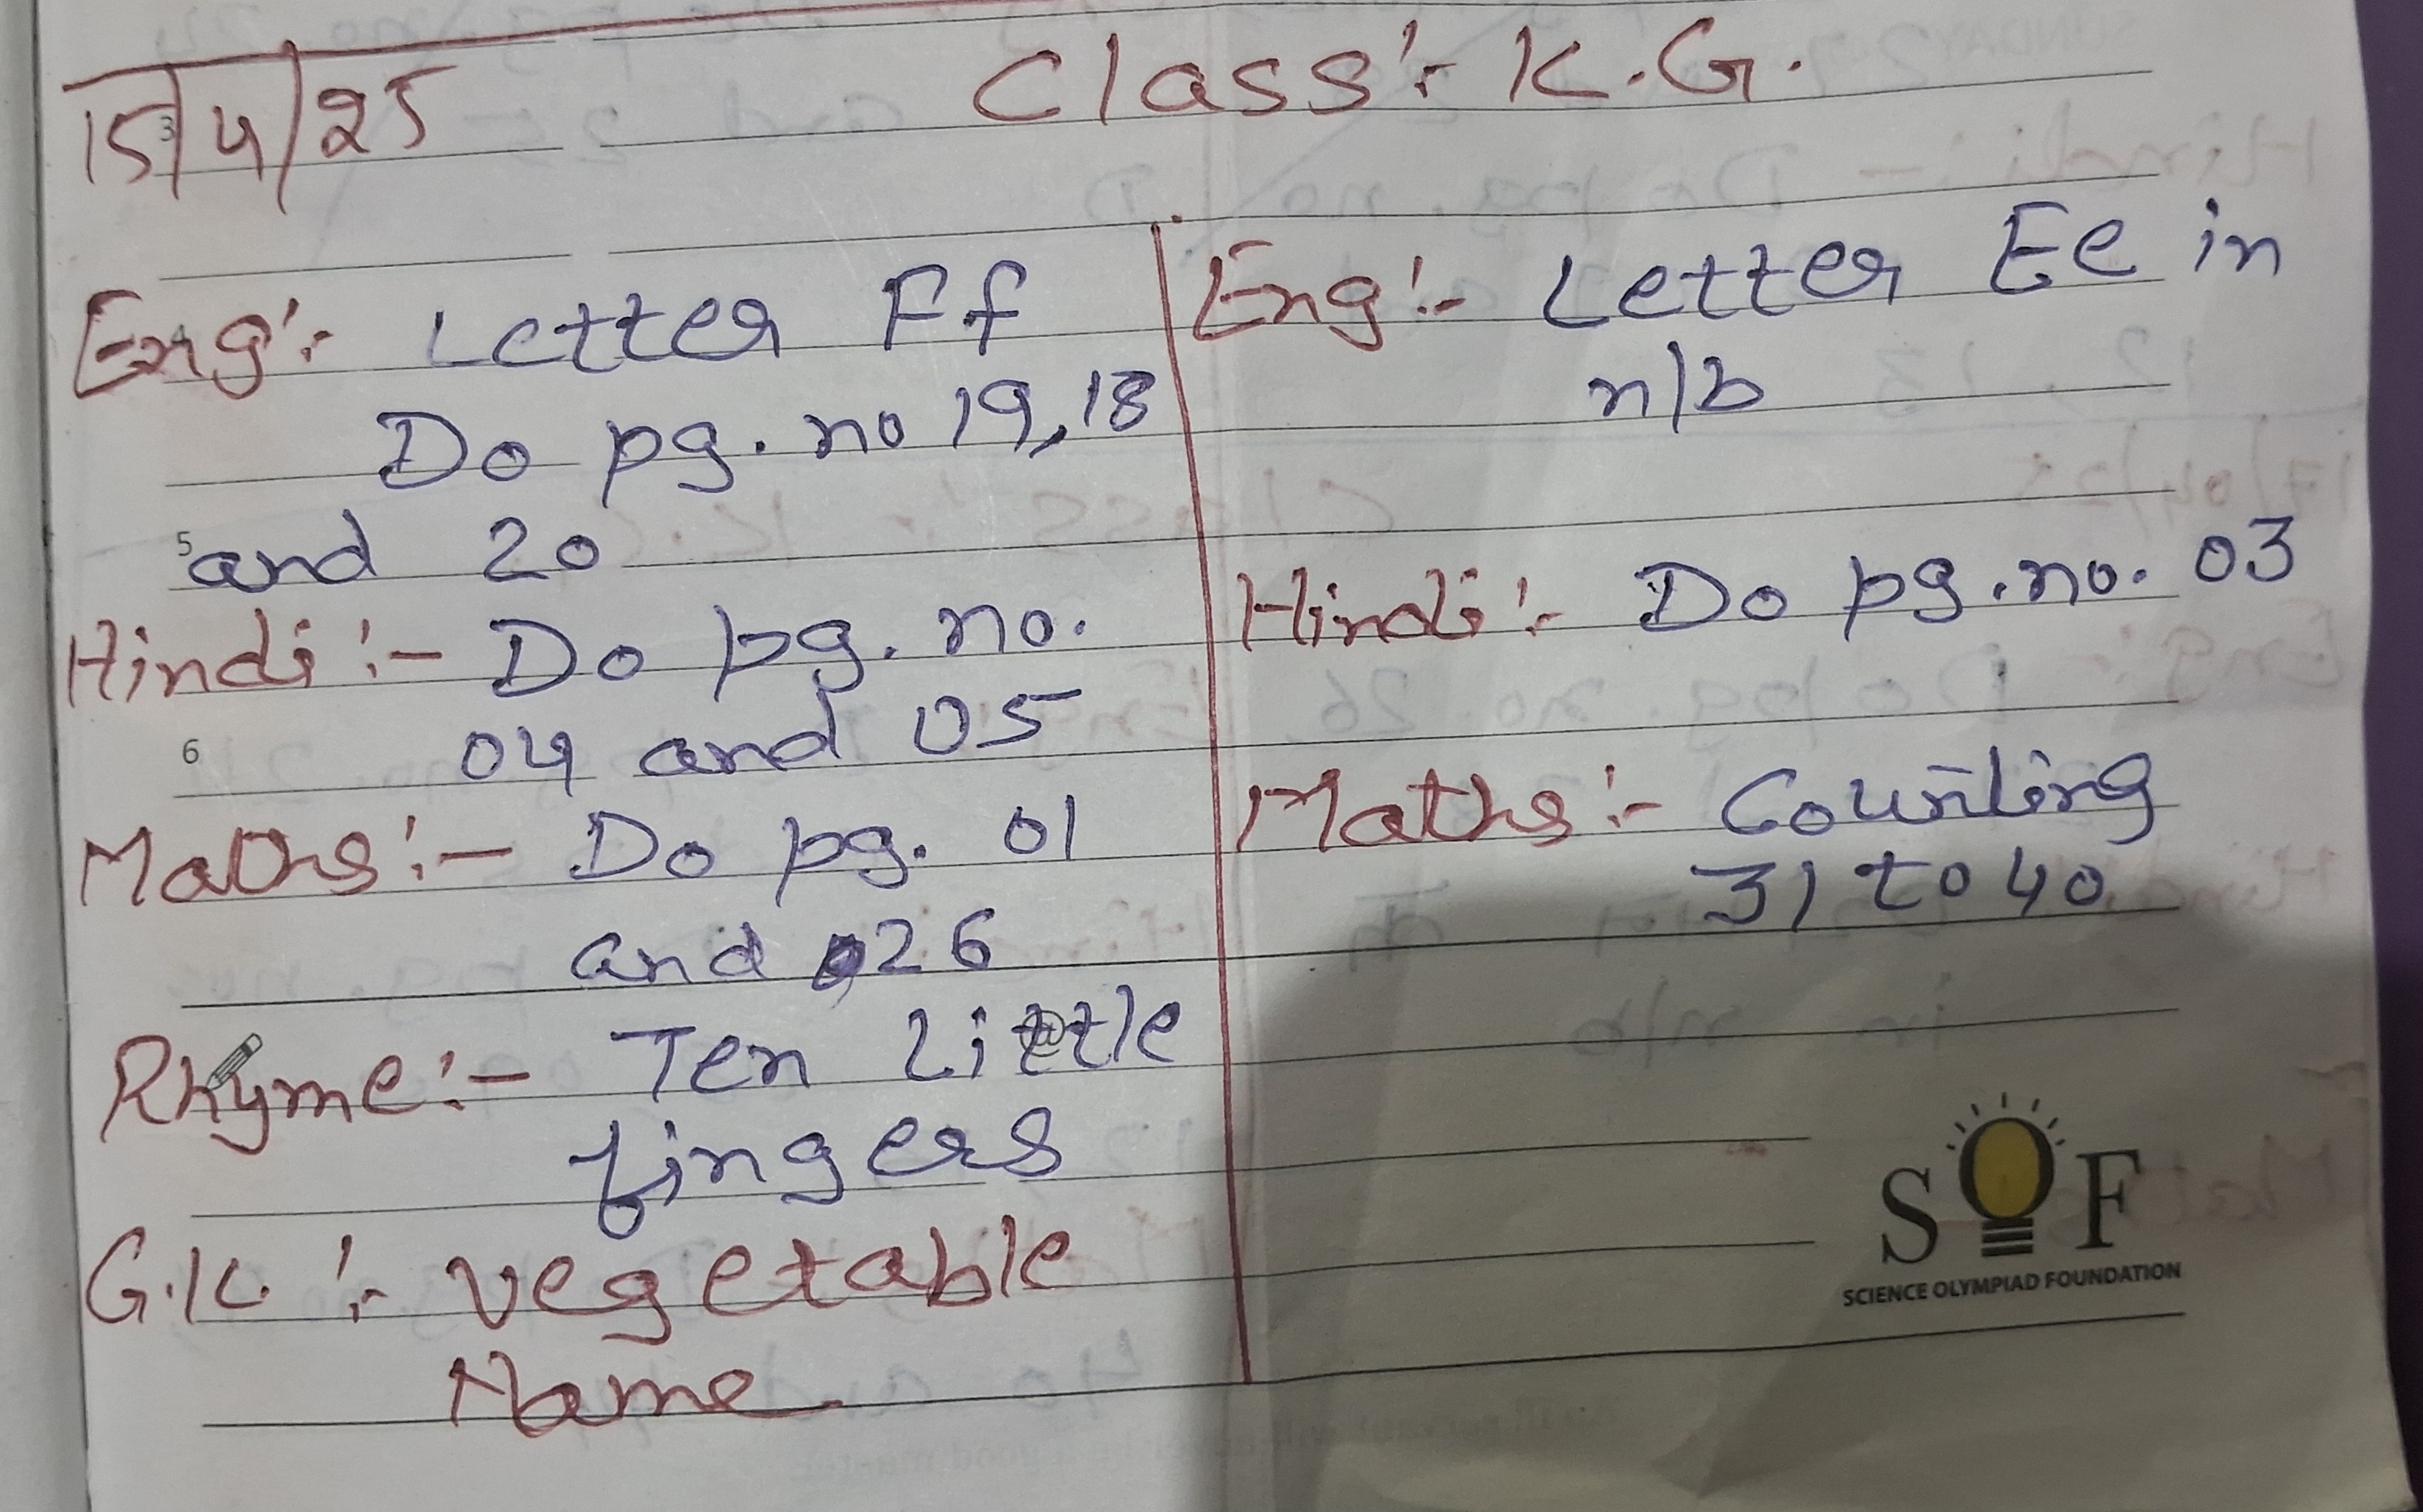 15/4/25
Class:- K.G.
Eng:- Letter Ff
Do pg. no 19, 18
and 20
Hindi:- Do pg. no.
04 and 05
Maths:- Do pg. 01
and 26
Rhyme:- Ten Little
fingers
G.K. :- vegetable
Name
Eng:- Letter Ee in
n/b
Hindi:- Do pg. no. 03
Maths:- Counting
31 to 40
3
4
5
6
SOF
SCIENCE OLYMPIAD FOUNDATION